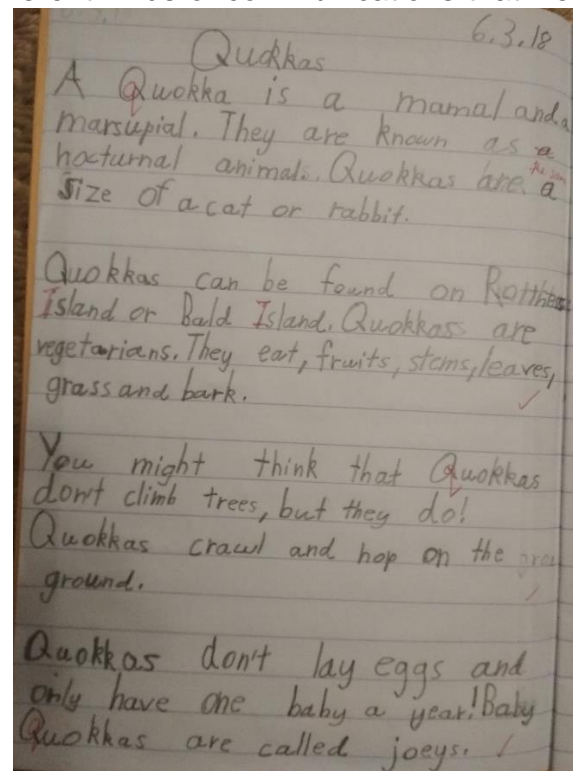 6.3.18
Quokkas
A Quokka is a mamal and a
marsupial. They are known as a
nocturnal animals. Quokkas are a
size of a cat or rabbit.
Quokkas can be found on
Island or Bald Island. Quokkass are
vegetarians. They eat, fruits, stems, leaves,
grass and bark.
You might think that Quokkas
don't climb trees, but they do!
Quokkas crawl and hop on the
ground.
Quokkas don't lay eggs and
only have one baby a year! Baby
Quokkas are called joeys.